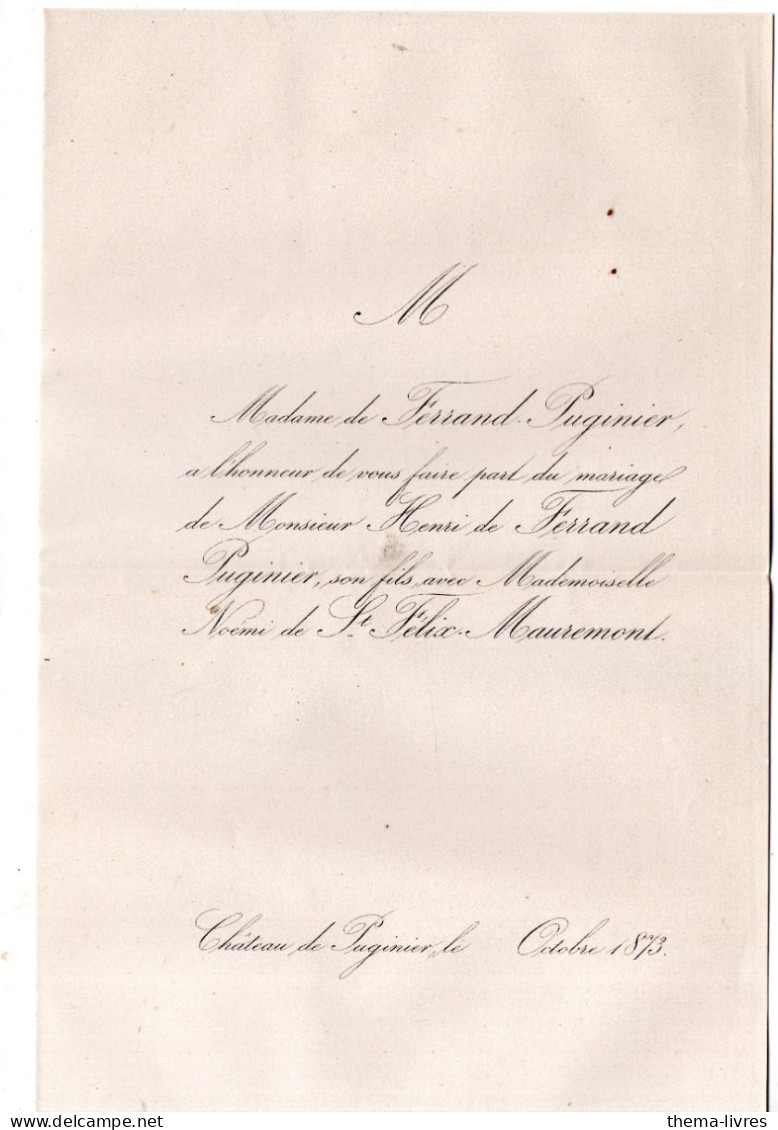 M
Madame de Ferrand-Puginier,
a l'honneur de vous faire part du mariage
de Monsieur Henri de Ferrand
Puginier, son fils, avec Mademoiselle
Noémi de St. Félix-Mauremont.
Château de Puginier, le Octobre 1873.
thema-livres